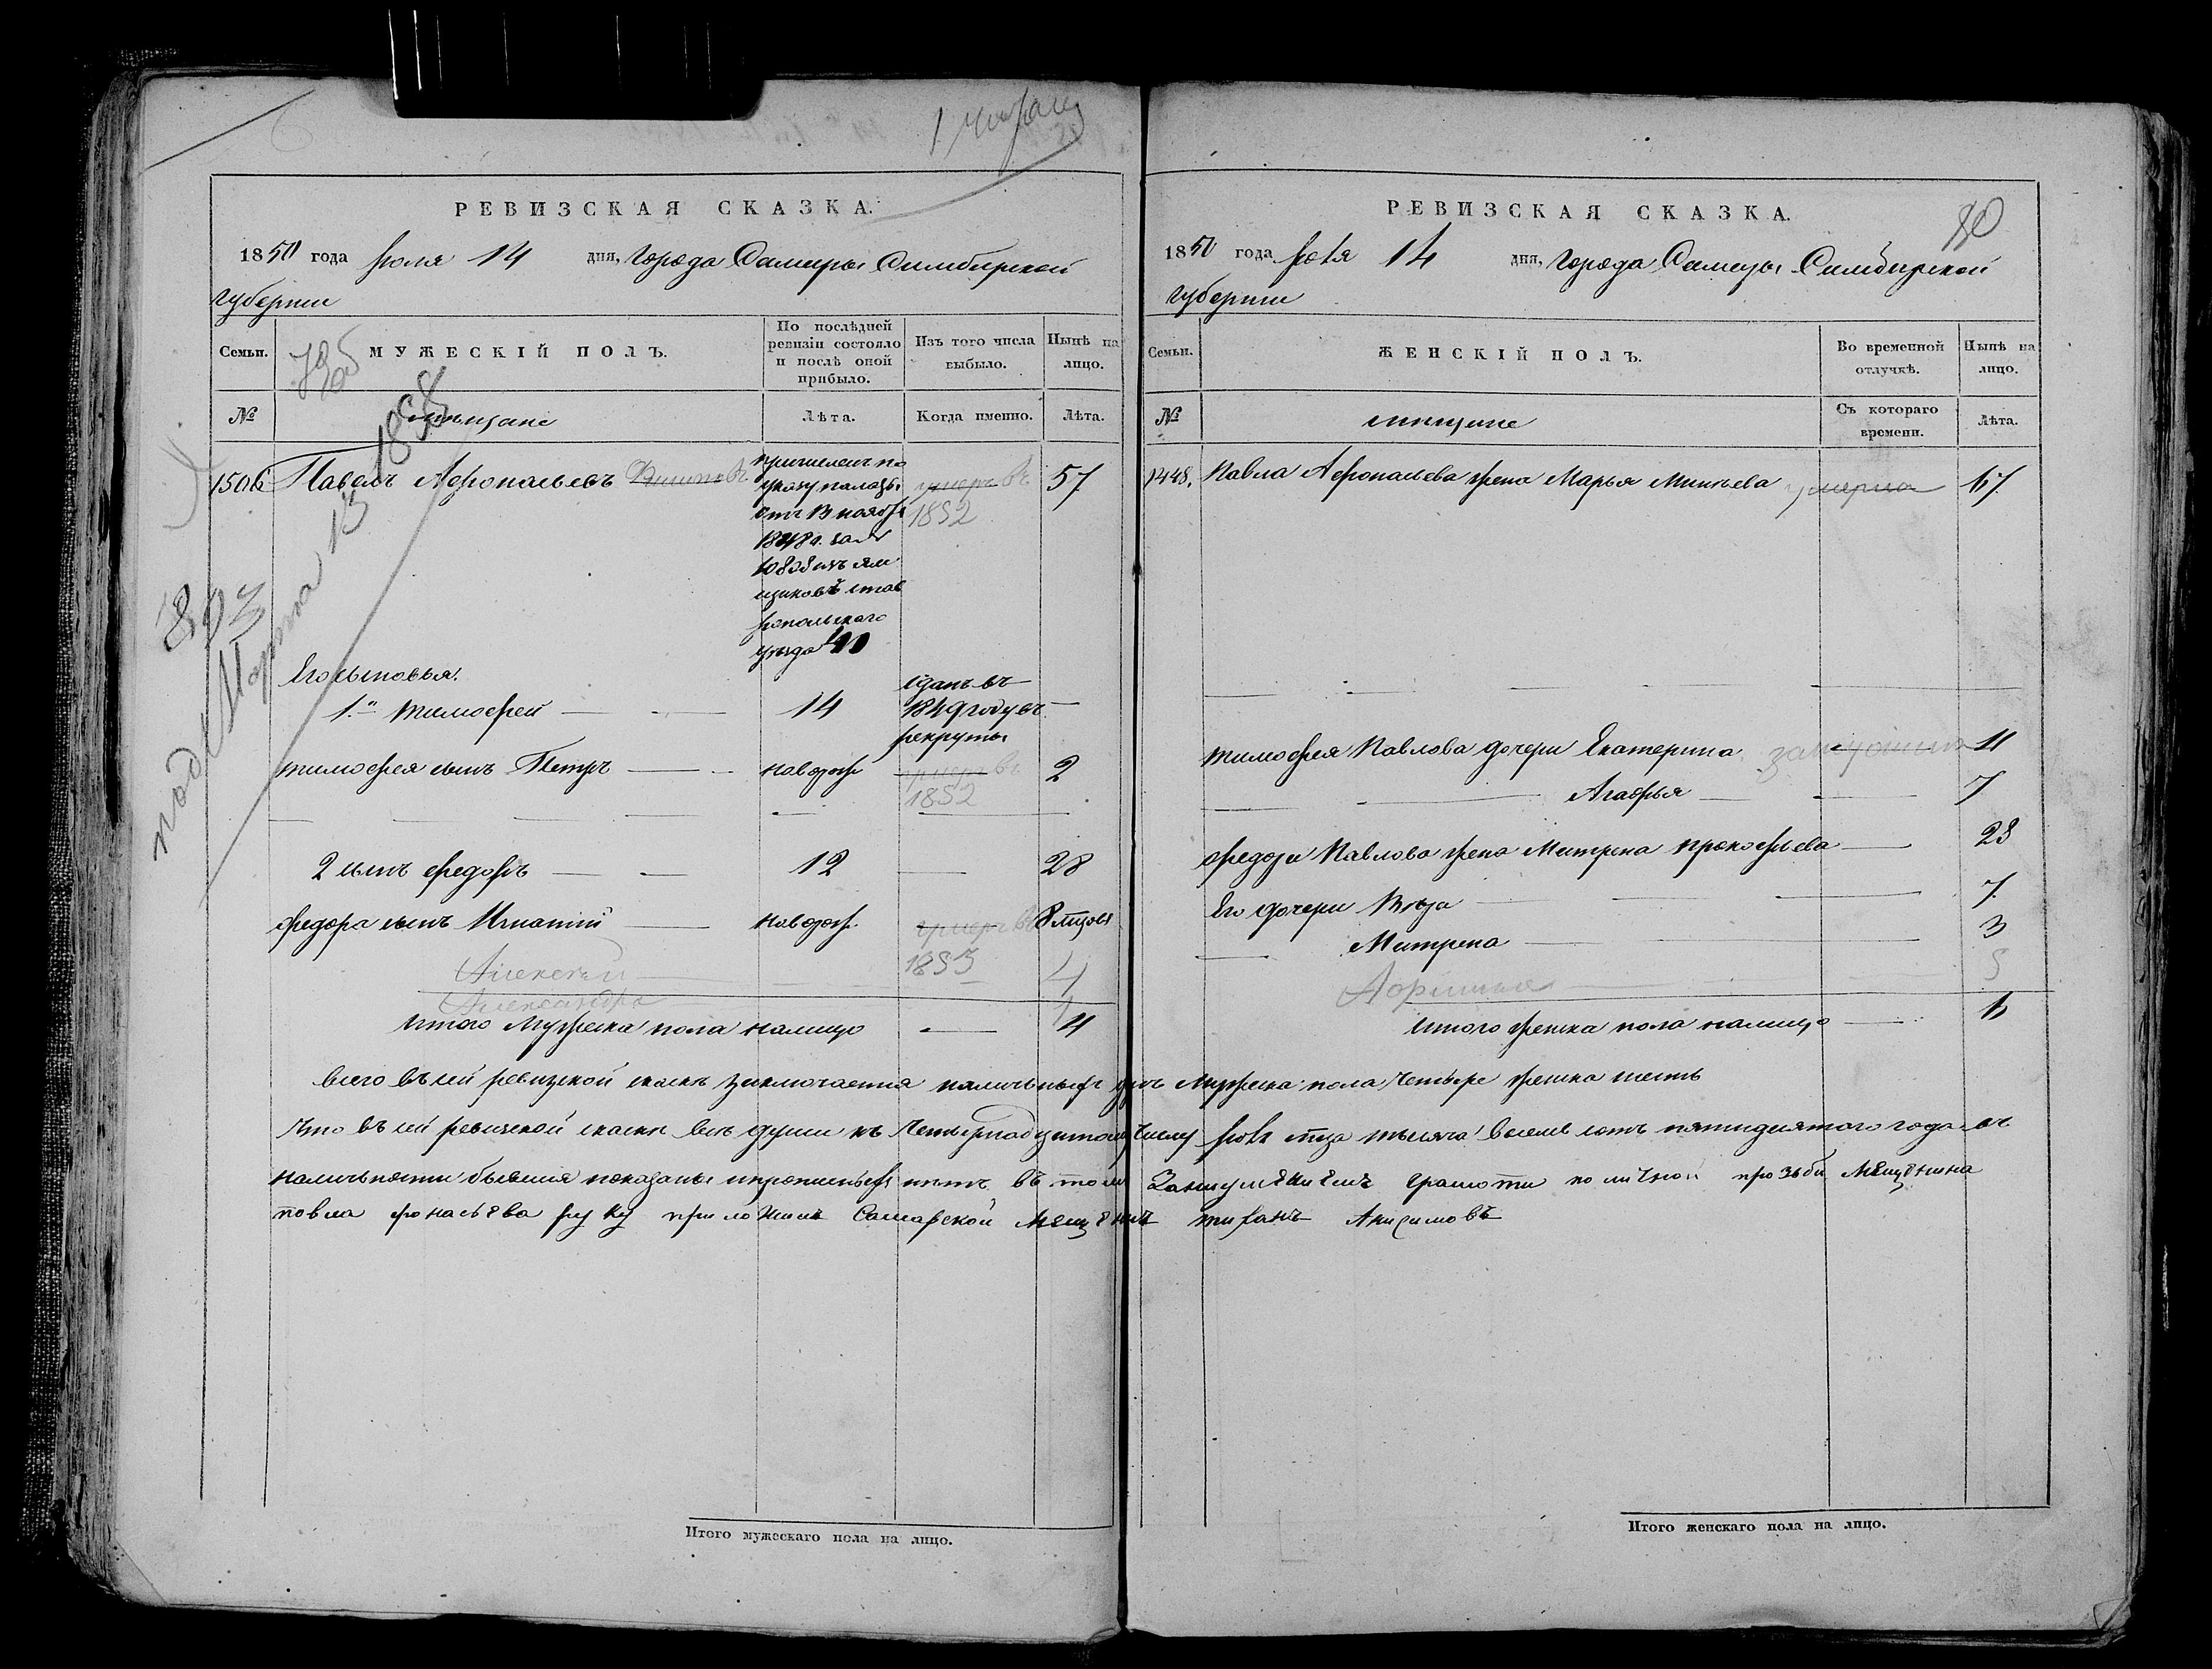 РЕВИЗСКАЯ СКАЗКА.
1850 года Июля 14 дня, города Самары Симбирской
губернии
Семьи.
МУЖЕСКІЙ ПОЛЪ.
По послѣдней
ревизіи состояло
и послѣ оной
прибыло.
Изъ того числа
выбыло.
Нынѣ на
лицо.
№
мѣщане
Лѣта.
Когда именно.
Лѣта.
1506
Павелъ Афонасьевъ
причислен по
указу палаты
отъ 13 ноября
1848 г. за №
10808 изъ ям
щиковъ став
ропольскаго
уѣзда
умеръ въ
1852
57
803
подъ Марта 13 1858
Его сыновья:
1й Тимофей
14
сданъ въ
1849 году въ
рекруты
Тимофея сынъ Петръ
новорож
умеръ въ
1852
2
2 сынъ Федоръ
12
28
Федора сынъ Игнатій
новорож.
умеръ въ
1853
8 мцовъ
Алексѣй
4
Александръ
Итого мужеска пола налицо
4
РЕВИЗСКАЯ СКАЗКА.
80
1850 года Июля 14 дня, города Самары Симбирской
губернии
Семьи.
ЖЕНСКІЙ ПОЛЪ.
Во временной
отлучкѣ.
Нынѣ на
лицо.
№
мѣщане
Съ котораго
времени.
Лѣта.
1448.
Павла Афонасьева жена Марья Минѣева
умерла
67
Тимофея Павлова дочери Екатерина
11
Агафья
7
Федора Павлова жена Матрена Прокофьева
28
Его дочери
7
Матрена
3
5
Итого женска пола налицо
6
Всего въ сей ревизской сказкѣ заключается наличныхъ душъ мужеска пола четыре женска шесть
Что въ сей ревизской сказкѣ всѣ души къ четырнадцатому числу Июля тысяча восемь сотъ пятидесятого года въ
наличности бывшия показаны и прописныхъ нѣтъ въ томъ Занеумѣниемъ грамоти по личной прозьби Мещенина
павла фонасьева руку приложилъ Самарской Мещенинъ